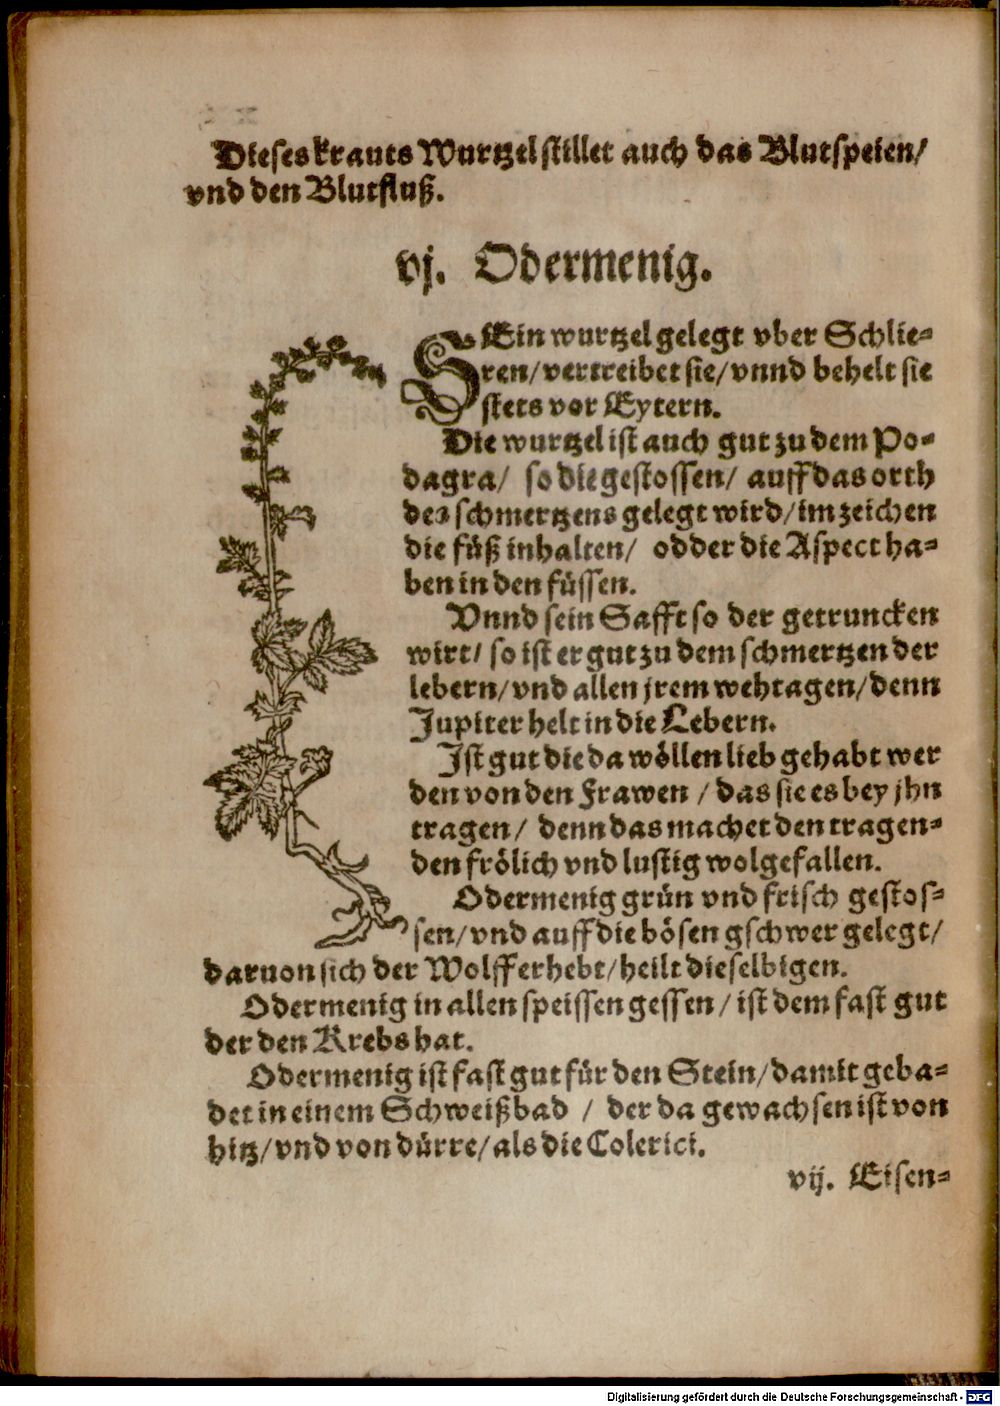 Dieses krauts Wurtzel stillet auch das Blutspeien/
vnd den Blutfluß.
vj. Odermenig.
SEin wurtzel gelegt vber Schlie-
ren/ vertreibet sie/ vnnd behelt sie
stets vor Eytern.
Die wurtzel ist auch gut zu dem Po-
dagra/ so die gestossen/ auff das orth
des schmertzens gelegt wird/ im zeichen
die füß inhalten/ odder die Aspect ha-
ben in den füssen.
Vnnd sein Safft so der getruncken
wirt/ so ist er gut zu dem schmertzen der
lebern/ vnd allen jrem wehtagen/ denn
Jupiter helt in die Lebern.
Ist gut die da wöllen lieb gehabt wer
den von den Frawen / das sie es bey jhn
tragen/ denn das machet den tragen-
den frölich vnd lustig wolgefallen.
Odermenig grün vnd frisch gestos-
sen/ vnd auff die bösen gschwer gelegt/
daruon sich der Wolff erhebt/ heilt dieselbigen.
Odermenig in allen speissen gessen/ ist dem fast gut
der den Krebs hat.
Odermenig ist fast gut für den Stein/ damit geba-
det in einem Schweißbad / der da gewachsen ist von
hitz/ vnd von dürre/ als die Colerici.
vij. Eisen-
Digitalisierung gefördert durch die Deutsche Forschungsgemeinschaft - DFG